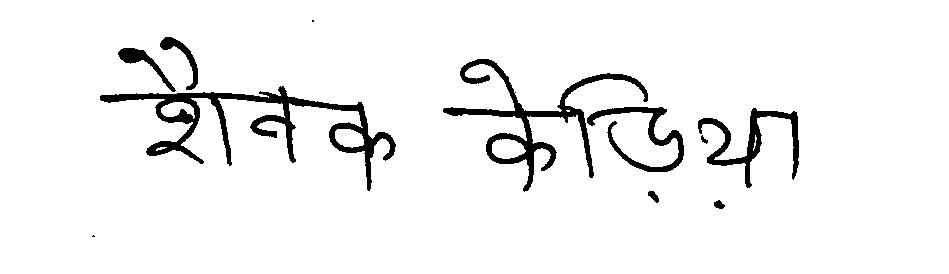 शैवक केड़िय़ा